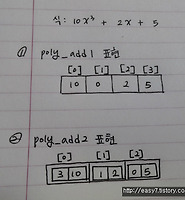 식: 10x³ + 2x + 5
① poly_add1 표현
[0] [1] [2] [3]
10 0 2 5
② poly_add2 표현
[0] [1] [2]
3 10 1 2 0 5
http://easy7.tistory.com